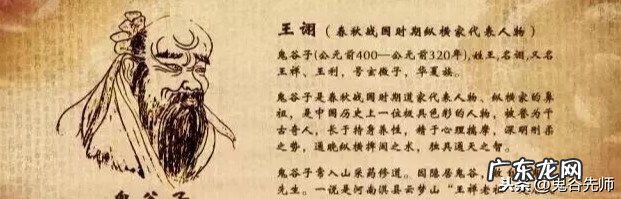 王诩(春秋战国时期纵横家代表人物)
鬼谷子(公元前400—公元前320年),姓王,名诩,又名
王祥、王利,号玄微子,华夏族。
鬼谷子是春秋战国时期道家代表人物、纵横家的鼻
祖,是中国历史上一位极具色彩的人物,被誉为千
古奇人,长于持身养性,精于心理揣摩,深明刚柔
之势,通晓纵横捭阖之术,独具通天之智。
鬼谷子常入山采药修道。因隐居鬼谷,故
先生。一说是河南淇县云梦山"王祥老
鬼谷子
广东龙网
头条@鬼谷先师